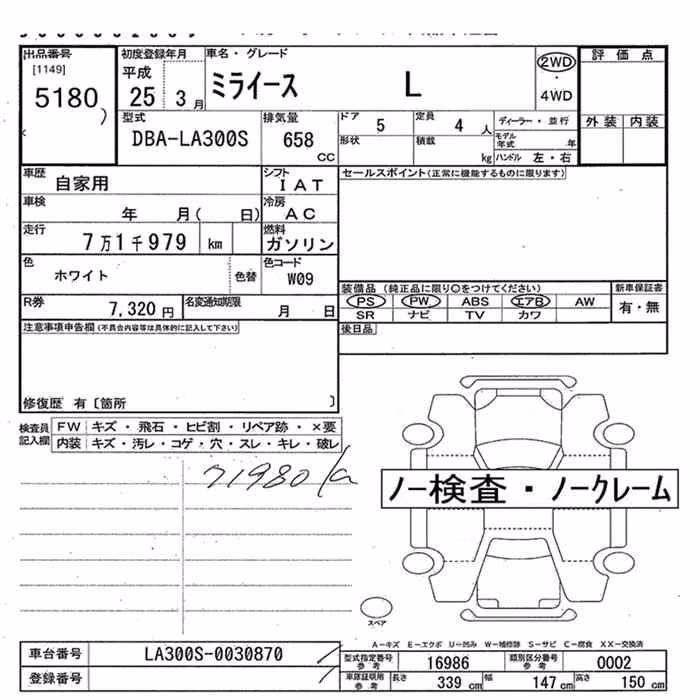 出品番号 初度登録年月 車名・グレード 評価点
[1149] 平成 2WD
5180 25 3月 ミライース L 4WD
型式 排気量 ドア 定員 ディーラー・並行 外装 内装
DBA-LA300S 658 CC 5 4人 モデル年式 年
形状 積載 kg ハンドル 左・右
車歴 自家用 シフト IAT セールスポイント(正常に機能するものに限ります)
車検 年 月( 日) 冷房 AC
走行 7万1千979 km 燃料 ガソリン
色 ホワイト 色替 色コード W09
装備品(純正品に限り○をつけてください) 新車保証書
R券 7,320円 名変通知期限 月 日
PS PW ABS エアB AW 有・無
SR ナビ TV カワ
注意事項申告欄(不具合内容等は具体的に記入して下さい) 後日品
修復歴 有〔箇所 〕
検査員記入欄 FW キズ・飛石・ヒビ割・リペア跡・×要
内装 キズ・汚レ・コゲ・穴・スレ・キレ・破レ
71980
ノー検査・ノークレーム
スペア
A-キズ E-エクボ U-凹み W-補修跡 S-サビ C-腐食 XX-交換済
車台番号 LA300S-0030870 型式指定番号参考 16986 類別区分番号参考 0002
登録番号 車庫証明用参考 長さ 339cm 幅 147cm 高さ 150cm